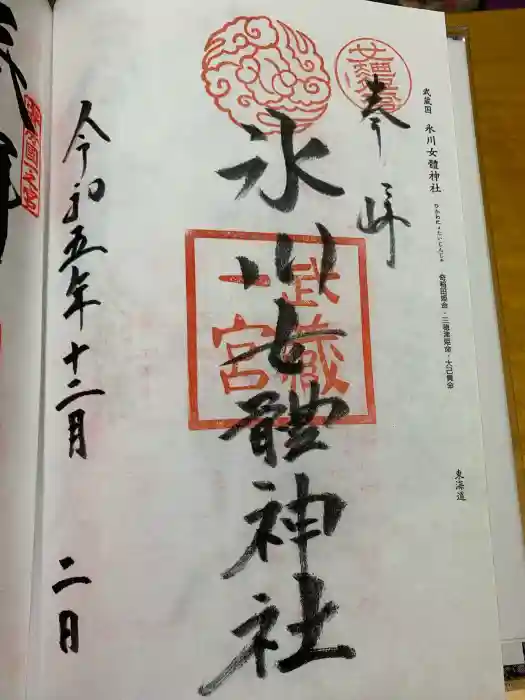 武蔵国 氷川女體神社 ひかわにょたいじんじゃ 奇稲田姫命・三穂津姫命・大己貴命
東海道
奉拝
氷川女體神社
武蔵
一宮
令和五年十二月二日